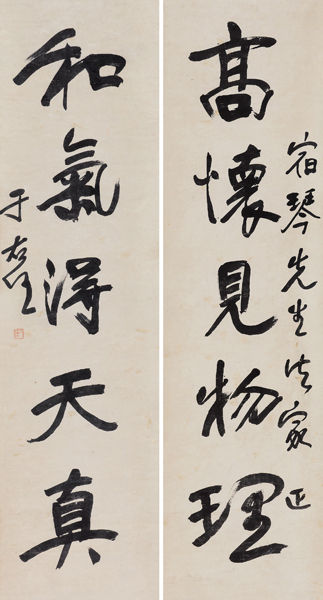 高懷見物理
宿琴先生法家正
和氣得天真
于右任